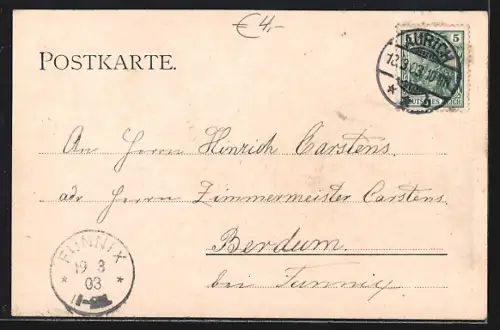 € 4,-
POSTKARTE.
AURICH
5
DEUTSCHES REICH
An Herrn Hinrich Carstens.
adr Herrn Zimmermeister Carstens.
Berdum.
bei Funnix
FUNNIX
19 3
03